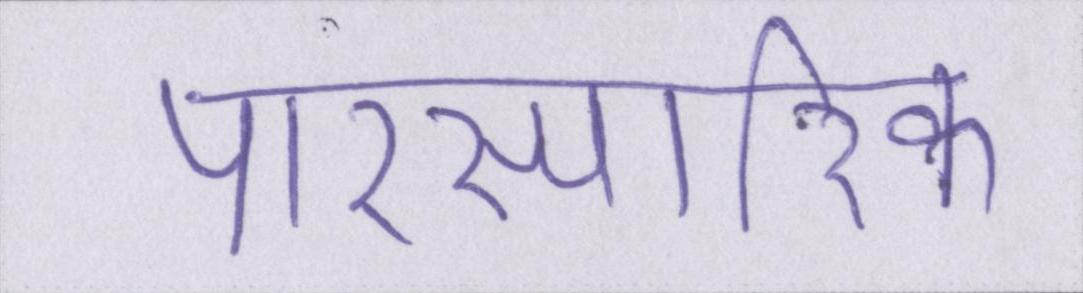 पारस्पारिक